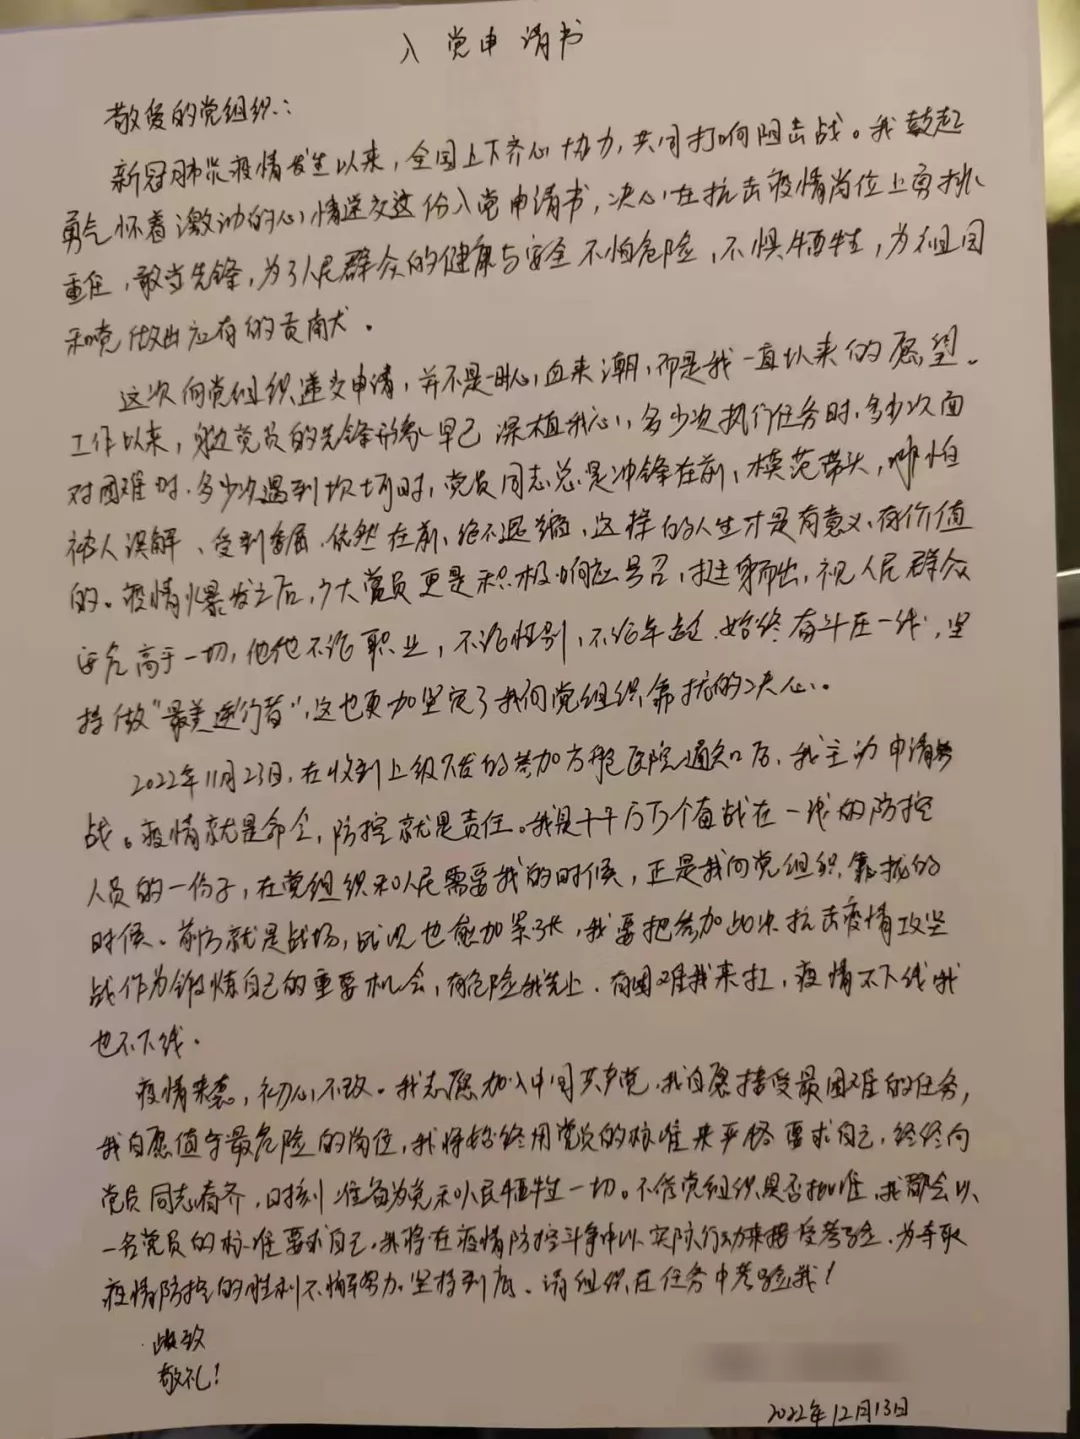 入党申请书
敬爱的党组织:
新冠肺炎疫情发生以来，全国上下齐心协力，共同打响阻击战。我鼓起
勇气怀着激动的心情递交这份入党申请书，决心在抗击疫情岗位上勇挑
重任，敢当先锋，为了人民群众的健康与安全不怕危险，不惧牺牲，为祖国
和党做出应有的贡献。
这次向党组织递交申请，并不是一时心血来潮，而是我一直以来的愿望。
工作以来，身边党员的先锋形象早已深植我心，多少次执行任务时，多少次面
对困难时，多少次遇到坎坷时，党员同志总是冲锋在前，模范带头，哪怕
被人误解、受到委屈，依然在前，绝不退缩，这样的人生才是有意义、有价值
的。疫情爆发之后，广大党员更是积极响应号召，挺身而出，视人民群众
安危高于一切，他们不论职业，不论性别，不论年龄，始终奋斗在一线，坚
持做"最美逆行者"，这也更加坚定了我向党组织靠拢的决心。
2022年11月23日，在收到上级下发的参加方舱医院通知后，我主动申请参
战。疫情就是命令，防控就是责任。我是千千万万个奋战在一线的防控
人员的一份子，在党组织和人民需要我的时候，正是我向党组织靠拢的
时候。前方就是战场，战况也愈加紧张，我要把参加此次抗击疫情攻坚
战作为锻炼自己的重要机会，有危险我先上，有困难我来扛，疫情不下线我
也不下线。
疫情来袭，初心不改。我志愿加入中国共产党，我自愿接受最困难的任务，
我自愿值守最危险的岗位，我将始终用党员的标准来严格要求自己，终终向
党员同志看齐，时刻准备为党和人民牺牲一切。不管党组织是否批准，我都会以
一名党员的标准要求自己，我将在疫情防控斗争中以实际行动来接受考验，为夺取
疫情防控的胜利不懈努力，坚持到底。请组织在任务中考验我！
此致
敬礼！
2022年12月13日